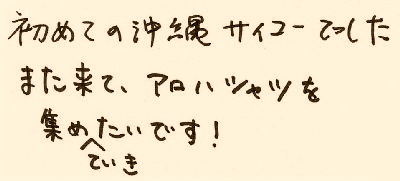 初めての沖縄サイコーでした
また来て、アロハシャツを
集めたいです！
ていき